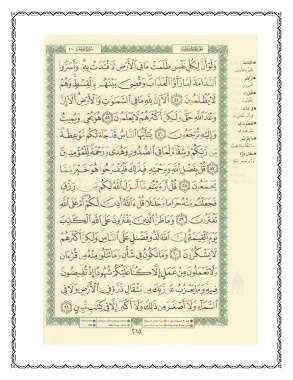 وَلَوْ أَنَّ لِكُلِّ نَفْسٍ ظَلَمَتْ مَا فِي الْأَرْضِ لَافْتَدَتْ بِهِ وَأَسَرُّوا
النَّدَامَةَ لَمَّا رَأَوُا الْعَذَابَ وَقُضِيَ بَيْنَهُم بِالْقِسْطِ وَهُمْ
لَا يُظْلَمُونَ ٥٤ أَلَا إِنَّ لِلَّهِ مَا فِي السَّمَاوَاتِ وَالْأَرْضِ أَلَا إِنَّ
وَعْدَ اللَّهِ حَقٌّ وَلَٰكِنَّ أَكْثَرَهُمْ لَا يَعْلَمُونَ ٥٥ هُوَ يُحْيِي وَيُمِيتُ
وَإِلَيْهِ تُرْجَعُونَ ٥٦ يَا أَيُّهَا النَّاسُ قَدْ جَاءَتْكُم مَّوْعِظَةٌ
مِّن رَّبِّكُمْ وَشِفَاءٌ لِّمَا فِي الصُّدُورِ وَهُدًى وَرَحْمَةٌ لِّلْمُؤْمِنِينَ
٥٧ قُلْ بِفَضْلِ اللَّهِ وَبِرَحْمَتِهِ فَبِذَٰلِكَ فَلْيَفْرَحُوا هُوَ خَيْرٌ مِّمَّا
يَجْمَعُونَ ٥٨ قُلْ أَرَأَيْتُم مَّا أَنزَلَ اللَّهُ لَكُم مِّن رِّزْقٍ
فَجَعَلْتُم مِّنْهُ حَرَامًا وَحَلَالًا قُلْ آللَّهُ أَذِنَ لَكُمْ أَمْ عَلَى اللَّهِ
تَفْتَرُونَ ٥٩ وَمَا ظَنُّ الَّذِينَ يَفْتَرُونَ عَلَى اللَّهِ الْكَذِبَ
يَوْمَ الْقِيَامَةِ إِنَّ اللَّهَ لَذُو فَضْلٍ عَلَى النَّاسِ وَلَٰكِنَّ أَكْثَرَهُمْ
لَا يَشْكُرُونَ ٦٠ وَمَا تَكُونُ فِي شَأْنٍ وَمَا تَتْلُو مِنْهُ مِن قُرْآنٍ
وَلَا تَعْمَلُونَ مِنْ عَمَلٍ إِلَّا كُنَّا عَلَيْكُمْ شُهُودًا إِذْ تُفِيضُونَ
فِيهِ وَمَا يَعْزُبُ عَن رَّبِّكَ مِن مِّثْقَالِ ذَرَّةٍ فِي الْأَرْضِ وَلَا فِي
السَّمَاءِ وَلَا أَصْغَرَ مِن ذَٰلِكَ وَلَا أَكْبَرَ إِلَّا فِي كِتَابٍ مُّبِينٍ ٦١
٢١٥